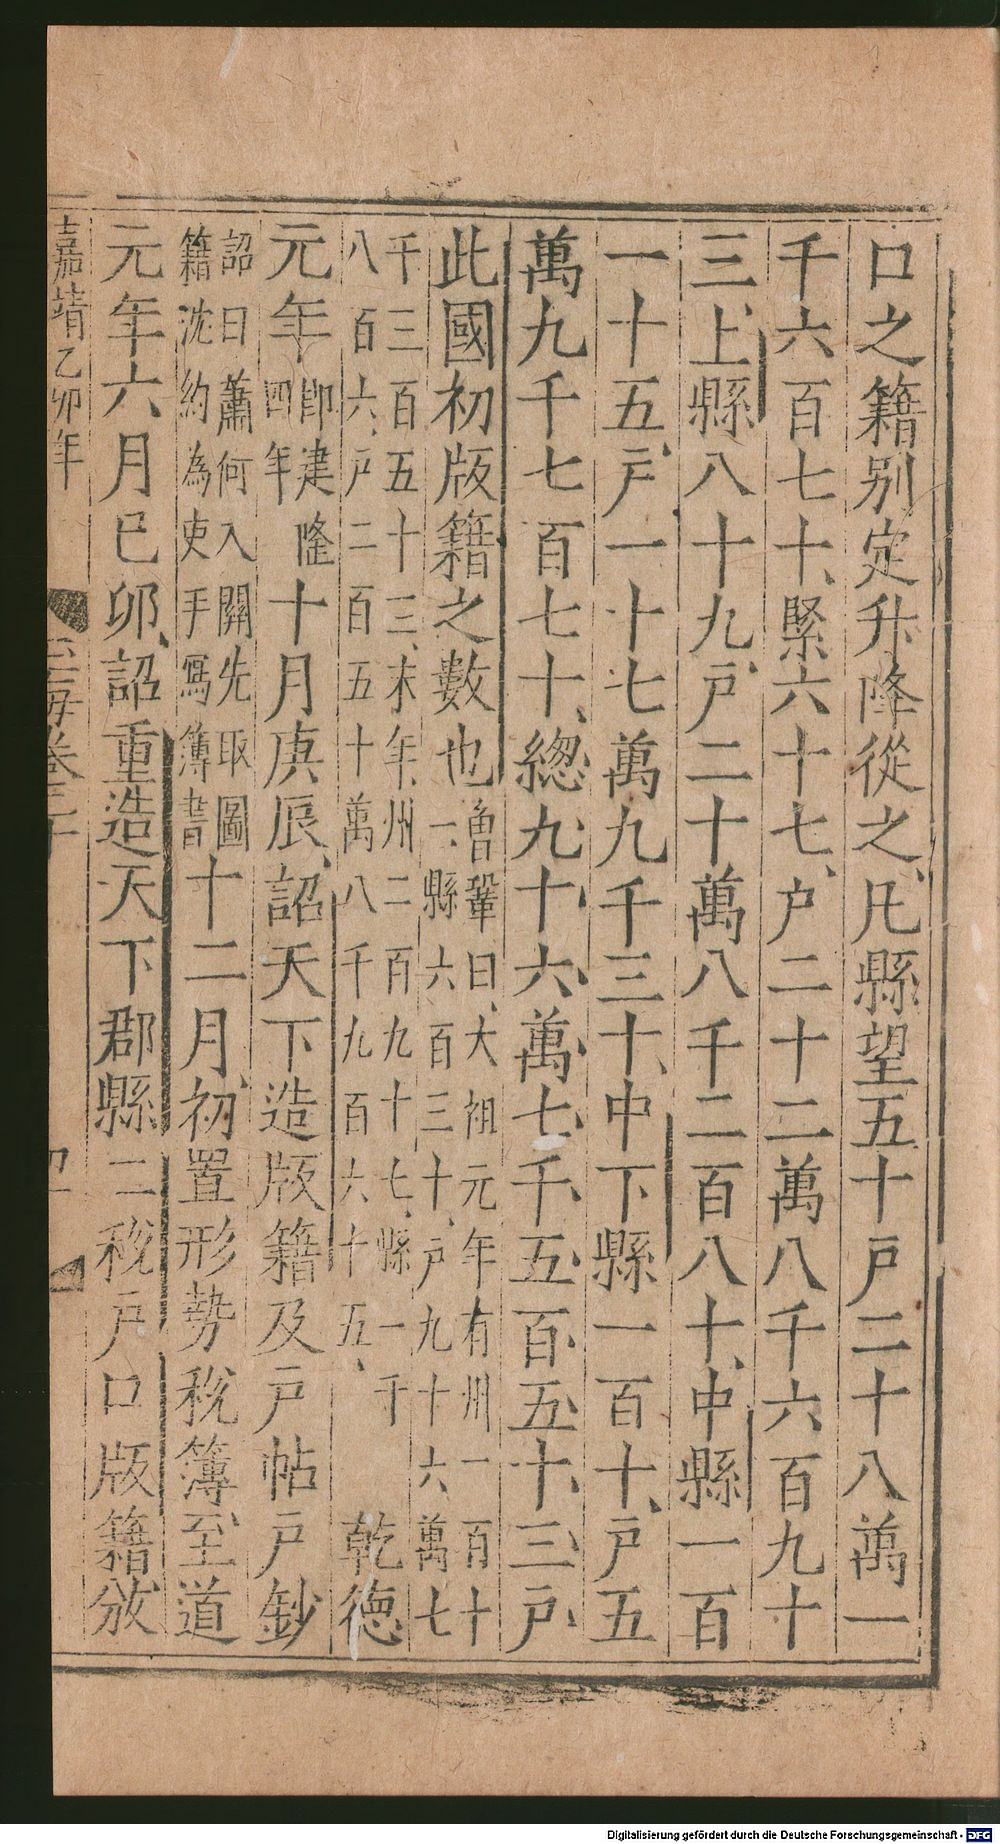 口之籍别定升降從之凡縣望五十戸二十八萬一
千六百七十緊六十七戸二十二萬八千六百九十
三上縣八十九戸二十萬八千二百八十中縣一百
一十五戸一十七萬九千三十中下縣一百十戸五
萬九千七百七十總九十六萬七千五百五十三戸
此國初版籍之數也魯鞏曰大祖元年有州一百十
一縣六百三十戸九十六萬七
千三百五十三末年州二百九十七縣一千
八百六戸二百五十萬八千九百六十五乾德
元年即建隆
四年十月庚辰詔天下造版籍及戸帖戸鈔
詔曰蕭何入關先取圖
籍沈約為吏手寫簿書十二月初置形勢税簿至道
元年六月已卯詔重造天下郡縣二税戸口版籍頒
嘉靖乙卯年
玉海卷二十
Digitalisierung gefördert durch die Deutsche Forschungsgemeinschaft - DFG